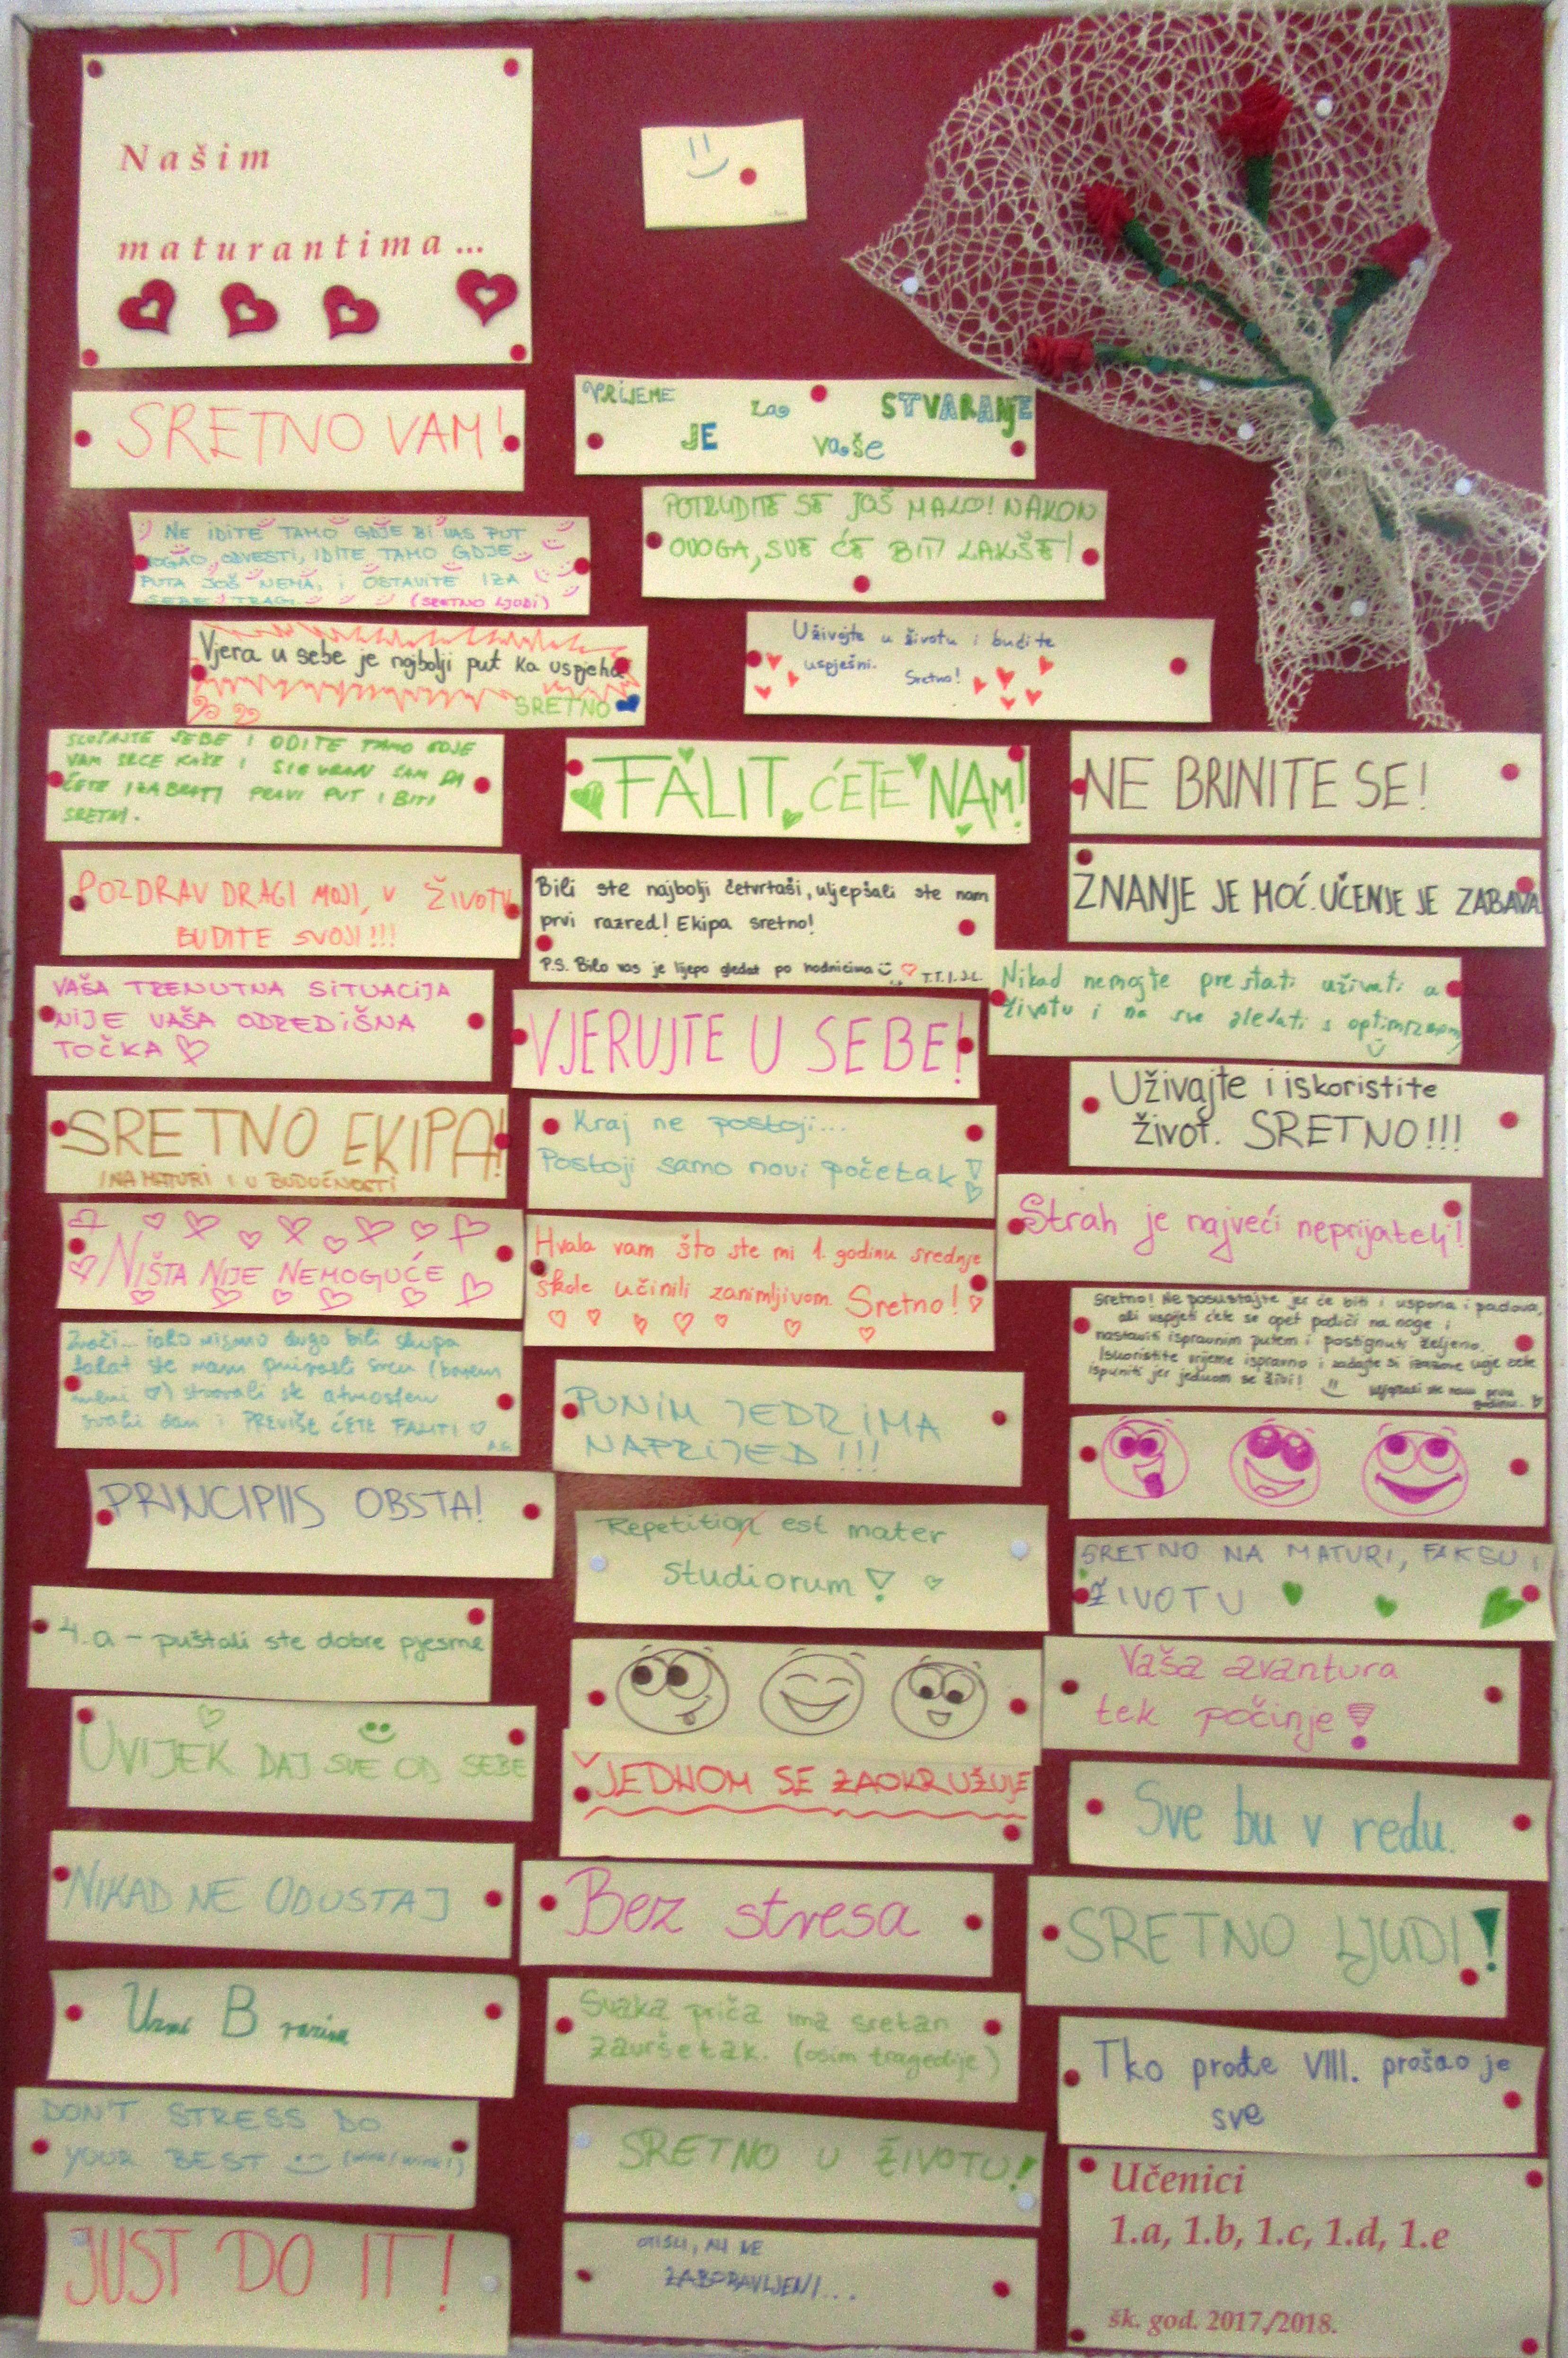 Našim
maturantima...
SRETNO VAM!
NE IDITE TAMO GDJE BI VAS PUT
MOGAO ODVESTI, IDITE TAMO GDJE
PUTA JOŠ NEMA, I OSTAVITE IZA
SEBE TRAG. (SRETNO LJUDI)
Vjera u sebe je najbolji put ka uspjehu
SRETNO
SLUŠAJTE SEBE I ODITE TAMO GDJE
VAM SRCE KAŽE I SIGURAN SAM DA
ĆETE IZABRATI PRAVI PUT I BITI
SRETNI.
POZDRAV DRAGI MOJI, U ŽIVOTU
BUDITE SVOJI!!!
VAŠA TRENUTNA SITUACIJA
NIJE VAŠA ODREDIŠNA
TOČKA
SRETNO EKIPA!
/NA MATURI I U BUDUĆNOSTI
NIŠTA NIJE NEMOGUĆE
Znači... iako nismo dugo bili skupa
falat ste nam
stvorali ste atmosferu
svaki dan i PREVIŠE ĆETE FALITI
A.G.
PRINCIPIIS OBSTA!
4.a - puštali ste dobre pjesme
UVIJEK DAJ SVE OD SEBE
NIKAD NE ODUSTAJ
Uzmi B razinu
DON'T STRESS DO
YOUR BEST (wink! wink!)
JUST DO IT!
VRIJEME ZA STVARANJE
JE vaše
POTRUDITE SE JOŠ MALO! NAKON
OVOGA, SVE ĆE BITI LAKŠE!
Uživajte u životu i budite
uspješni. Sretno!
FALIT ĆETE NAM!
Bili ste najbolji četvrtaši, uljepšali ste nam
prvi razred! Ekipa sretno!
P.S. Bilo vas je lijepo gledat po hodnicima T.T. I. J.L.
VJERUJTE U SEBE!
Kraj ne postoji...
Postoji samo novi početak!
Hvala vam što ste mi 1. godinu srednje
škole učinili zanimljivom. Sretno!
PUNIM JEDRIMA
NAPRIJED!!!
Repetition est mater
studiorum!
JEDNOM SE ZAOKRUŽUJE
Bez stresa
Svaka priča ima sretan
završetak. (osim tragedije)
SRETNO U ŽIVOTU!
OTIŠLI, ALI NE
ZABORAVLJENI...
NE BRINITE SE!
ZNANJE JE MOĆ. UČENJE JE ZABAVA
Nikad nemojte prestati uživati u
životu i na sve gledati s optimizmom
Uživajte i iskoristite
život. SRETNO!!!
Strah je najveći neprijatelj!
Sretno! Ne posustajte jer će biti i uspona i padova,
ali uspjeti ćete se opet podići na noge i
nastaviti ispravnim putem i postignuti željeno.
Iskoristite vrijeme ispravno i zadajte si izazove koje ćete
ispuniti jer jednom se živi! Uljepšali ste nam prvu
godinu.
SRETNO NA MATURI, FAKSU I
ŽIVOTU
Vaša avantura
tek počinje!
Sve bu v redu.
SRETNO LJUDI!
Tko prođe VIII. prošao je
sve
Učenici
1.a, 1.b, 1.c, 1.d, 1.e
šk. god. 2017./2018.